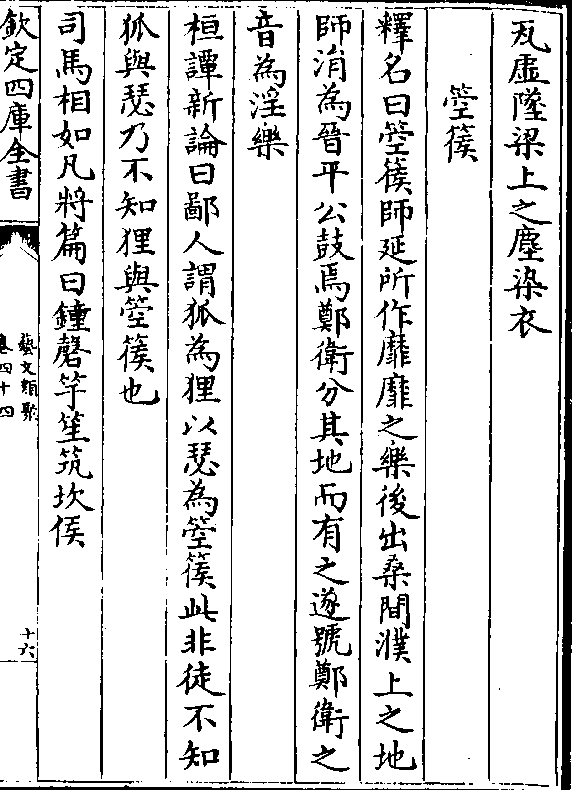 瓦虚墜梁上之塵染衣
箜篌
釋名曰箜篌師延所作靡靡之樂後出桑間濮上之地
師涓為晉平公鼓焉鄭衛分其地而有之遂號鄭衛之
音為淫樂
桓譚新論曰鄙人謂狐為狸以瑟為箜篌此非徒不知
狐與瑟乃不知狸與箜篌也
司馬相如凡將篇曰鍾磬竽笙筑坎侯
欽定四庫全書
藝文類聚
卷四十四
十六